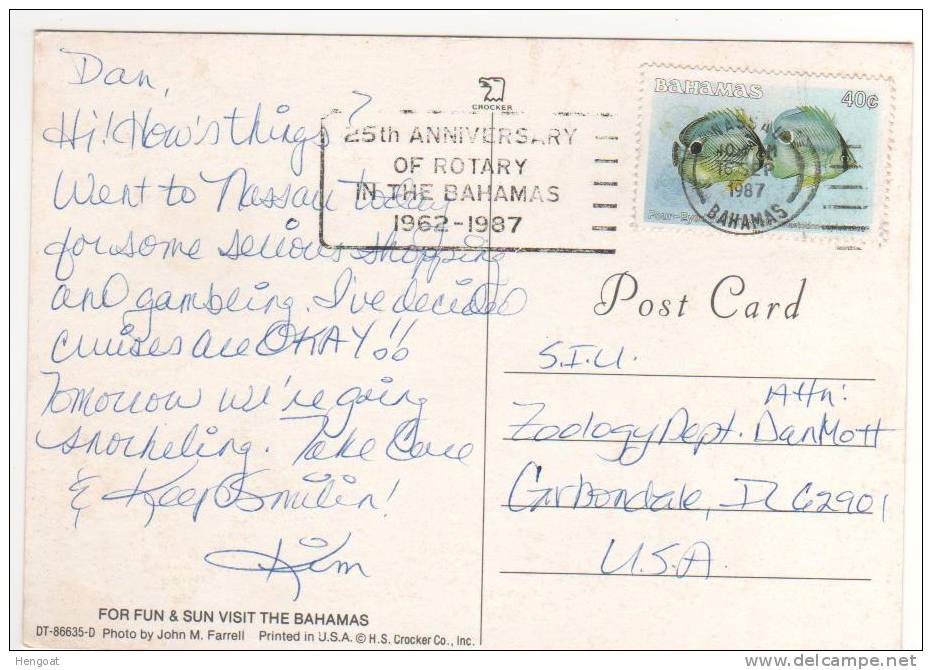 Dan,
Hi! How's things?
Went to Nassau today
for some serious shopping
and gambling. I've decided
cruises are OKAY!!
Tomorrow we're going
snorkeling. Take Care
& Keep Smilin!
Kim
FOR FUN & SUN VISIT THE BAHAMAS
DT-86635-D Photo by John M. Farrell Printed in U.S.A. © H.S. Crocker Co., Inc.
CROCKER
25th ANNIVERSARY
OF ROTARY
IN THE BAHAMAS
1962-1987
BAHAMAS
40c
SEP
1987
BAHAMAS
Four-Eye
Post Card
S.I.U.
Attn:
Zoology Dept. Dan Mott
Carbondale, IL 62901
U.S.A.
Hengoat
www.delcampe.net